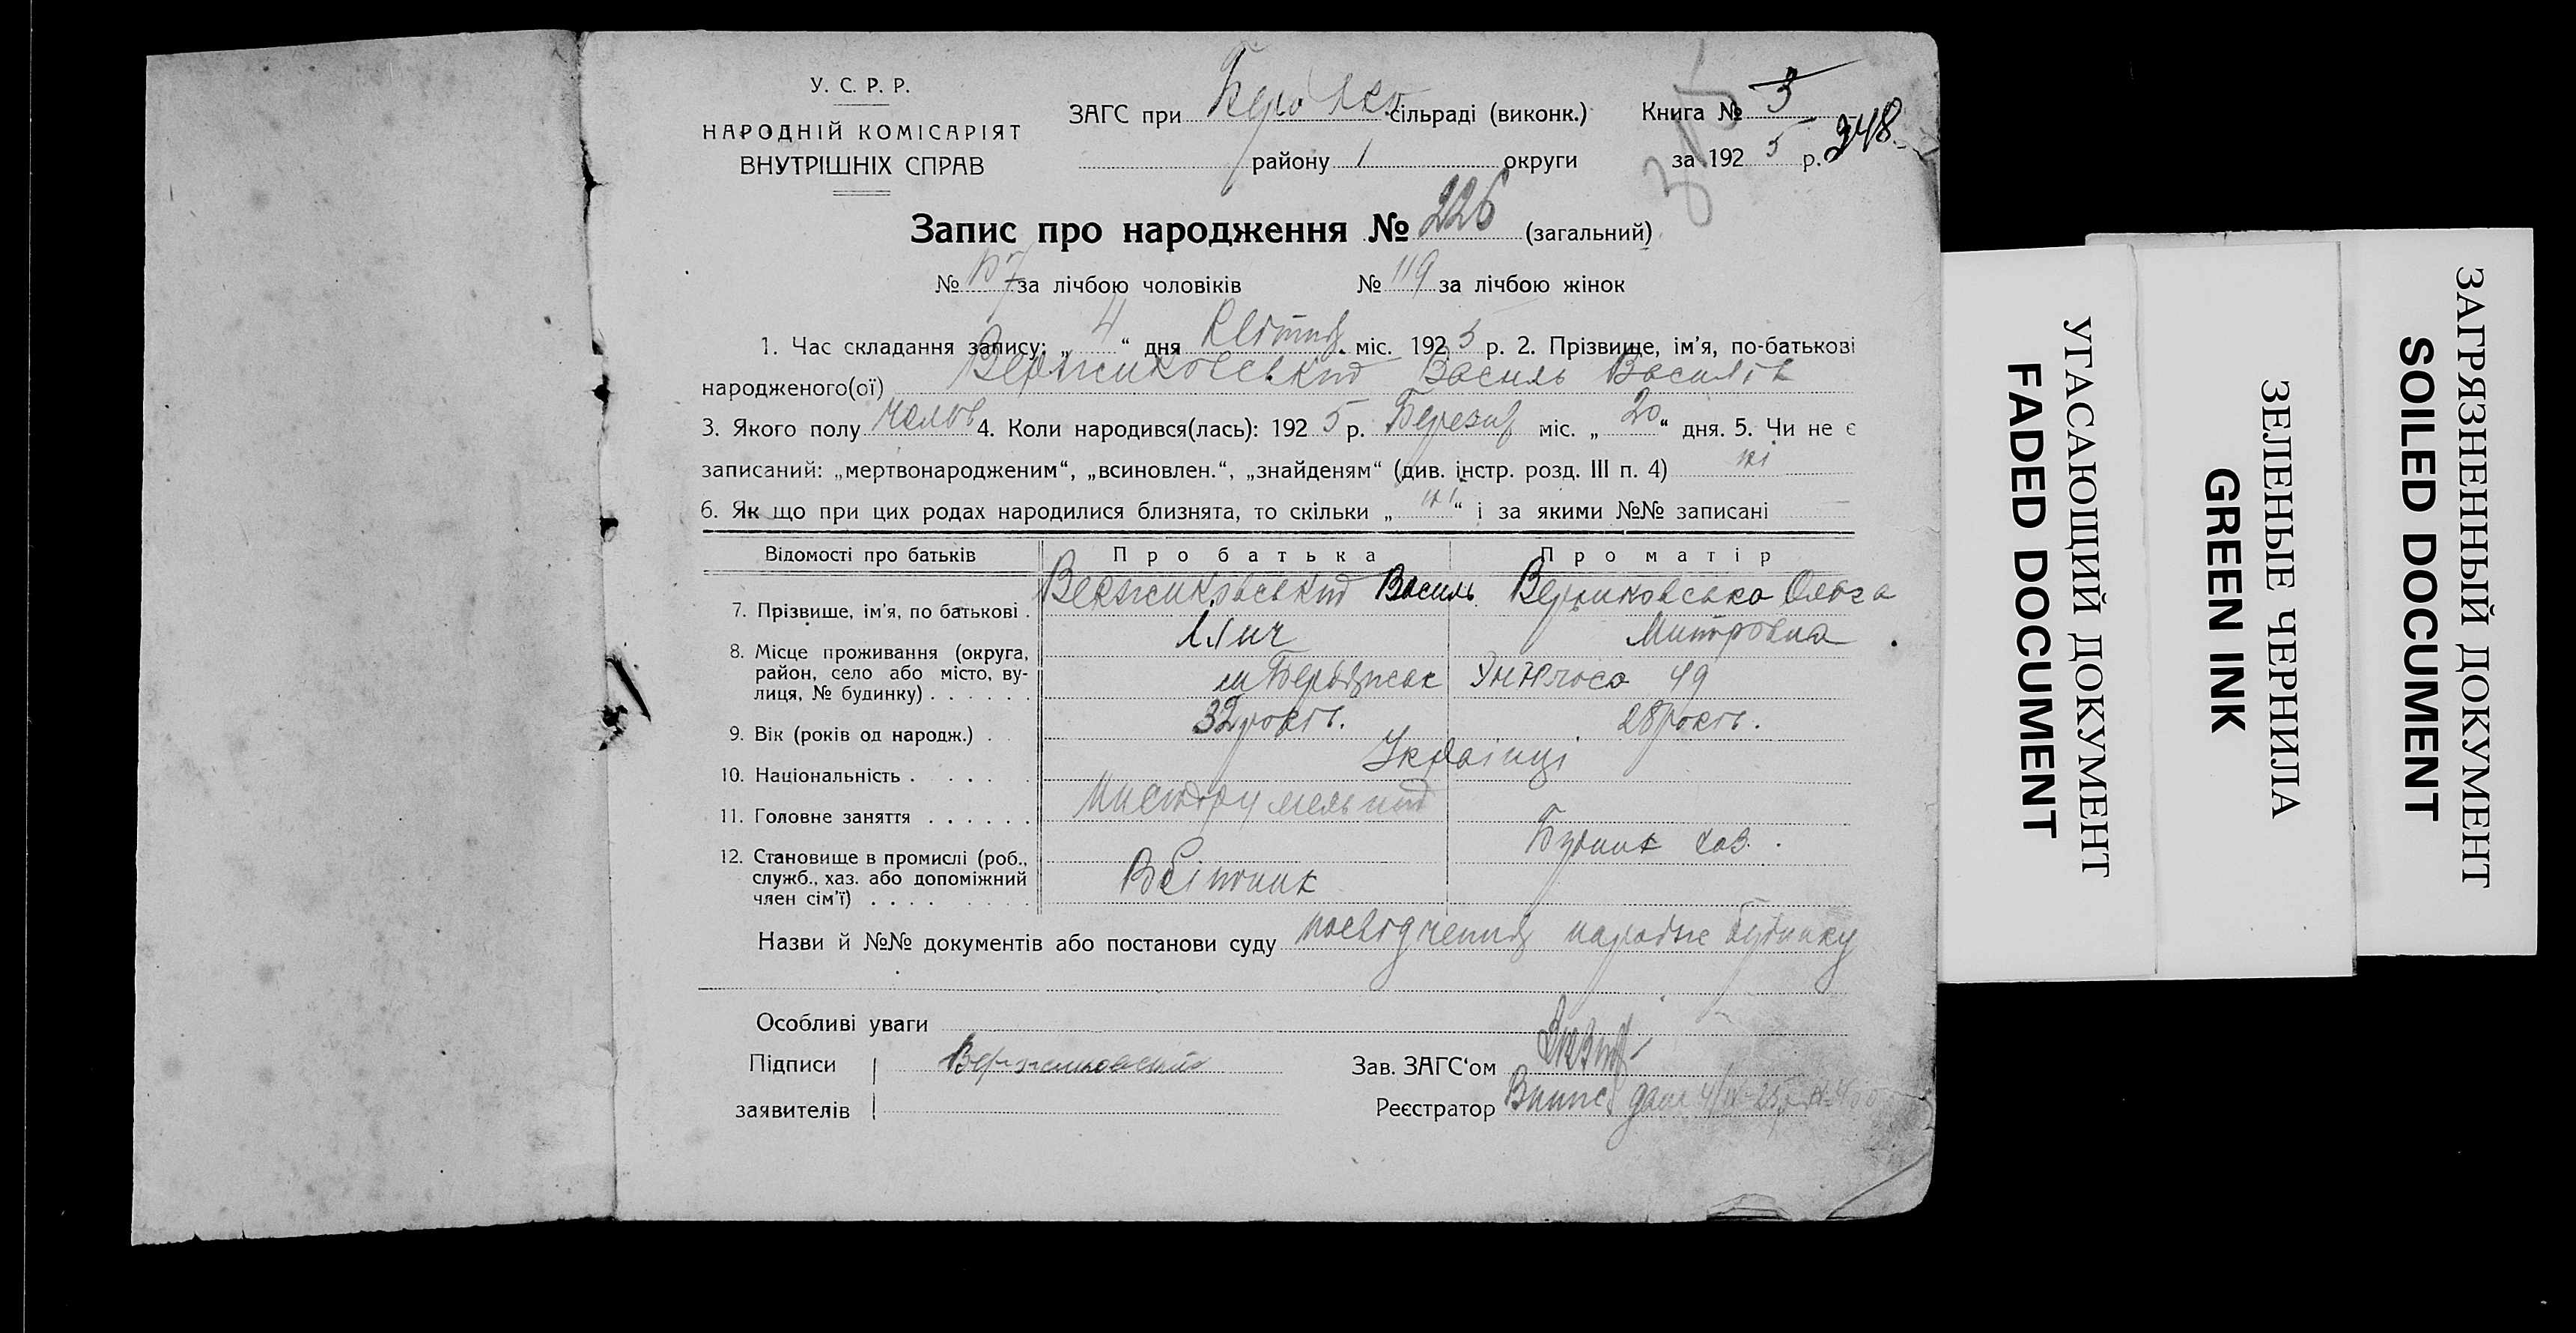 У. С. Р. Р.
НАРОДНІЙ КОМІСАРІЯТ
ВНУТРІШНІХ СПРАВ
ЗАГС при сільраді (виконк.)
району 1 округи
Книга № 3
за 1925 р. 348
315
Запис про народження № 226 (загальний)
№ 107 за лічбою чоловіків № 119 за лічбою жінок
1. Час складання запису: „ 4 “ дня Квітня міс. 1925 р. 2. Прізвище, ім’я, по-батькові
народженого(ої) Вержиковський Василь Васил\ів
3. Якого полу чолов 4. Коли народився(лась): 1925 р. Березня міс. „ 20 “ дня. 5. Чи не є
записаний: „мертвонародженим“, „всиновлен.“, „знайденям“ (див. інстр. розд. III п. 4) ні
6. Як що при цих родах народилися близнята, то скільки „ ні “ і за якими №№ записані
Відомості про батьків Про батька Про матір
7. Прізвище, ім’я, по батькові . Вержиковський Василь Вержиковська Ольга
Ілич Митровна
8. Місце проживання (округа,
район, село або місто, ву-
лиця, № будинку) . . . . . . м Бердянськ 49
9. Вік (років од народж.) . 32 років. 28 років.
10. Національність . . . . . Українці
11. Головне заняття . . . . . .
12. Становище в промислі (роб.,
служб., хаз. або допоміжний
член сім’ї) . . . . . . . . Будник хаз.
Назви й №№ документів або постанови суду посвідчення народж будинку
Особливі уваги
Підписи Вержиковский
заявителів
Зав. ЗАГС‘ом
Реєстратор
УГАСАЮЩИЙ ДОКУМЕНТ
FADED DOCUMENT
ЗЕЛЕНЫЕ ЧЕРНИЛА
GREEN INK
ЗАГРЯЗНЕННЫЙ ДОКУМЕНТ
SOILED DOCUMENT